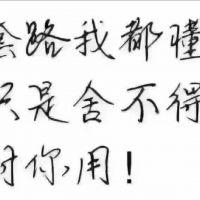 套路我都懂
只是舍不得
对你,用!